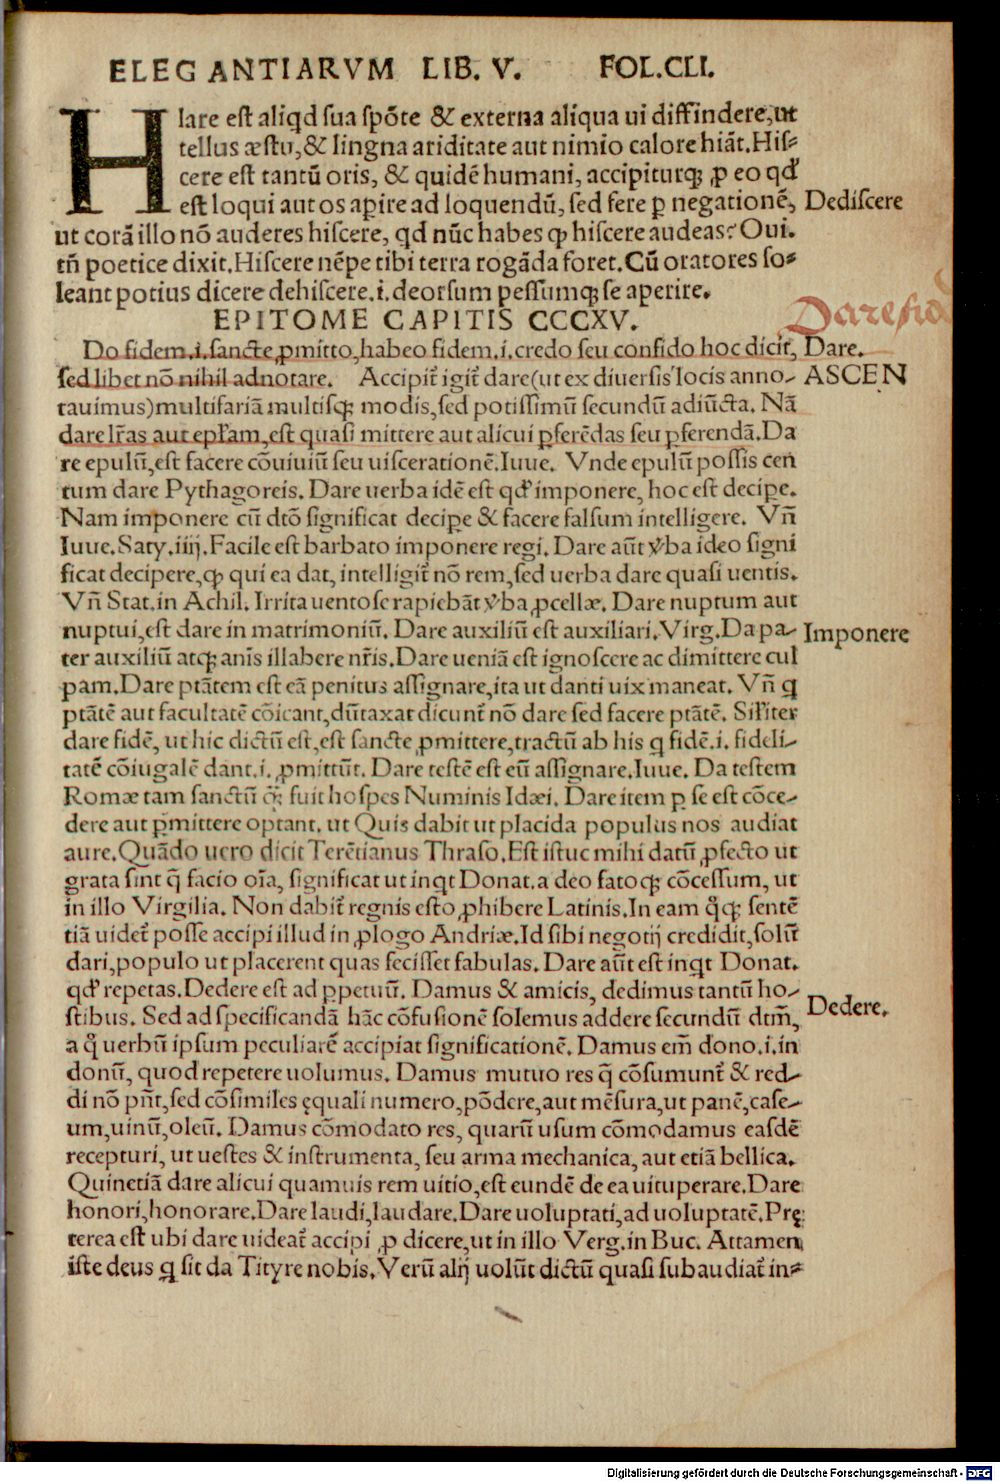 ELEGANTIARVM LIB. V. FOL.CLI.
HIare est aliqd sua spõte & externa aliqua ui diffindere,ut
tellus æstu,& lingna ariditate aut nimio calore hiãt.His-
cere est tantũ oris, & quidẽ humani, accipiturqꝫ ꝓ eo qđ
est loqui aut os aꝑire ad loquendũ, sed fere ꝑ negationẽ, Dediscere
ut corã illo nõ auderes hiscere, qd nũc habes ꝙ hiscere audeas? Oui.
tñ poetice dixit.Hiscere nẽpe tibi terra rogãda foret.Cũ oratores so-
leant potius dicere dehiscere.i.deorsum pessumqꝫ se aperire.
EPITOME CAPITIS CCCXV.
Dare fid
Do fidem.i.sancte,ꝓmitto,habeo fidem.i.credo seu confido hoc dicit, Dare.
sed libet nõ nihil adnotare. Accipit̃ igit̃ dare(ut ex diuersis locis anno- ASCEN
tauimus)multifariã multisqꝫ modis,sed potissimũ secundũ adiũcta. Nã
dare lr̃as aut epl̃am,est quasi mittere aut alicui ꝑferẽdas seu ꝑferendã.Da
re epulũ,est facere cõuiuiũ seu uiscerationẽ.Iuue. Vnde epulũ possis cen
tum dare Pythagoreis. Dare uerba idẽ est qđ imponere, hoc est deciꝑe.
Nam imponere cũ dtõ significat deciꝑe & facere falsum intelligere. Vñ
Iuue.Saty.iiij.Facile est barbato imponere regi. Dare aũt ꝟba ideo signi
ficat decipere,ꝙ qui ea dat, intelligit̃ nõ rem,sed uerba dare quasi uentis.
Vñ Stat.in Achil. Irrita uentosę rapiebãt ꝟba ꝓcellæ. Dare nuptum aut
nuptui,est dare in matrimoniũ. Dare auxiliũ est auxiliari.Virg.Da pa- Imponere
ter auxiliũ atqꝫ anĩs illabere nr̃is.Dare ueniã est ignoscere ac dimittere cul
pam.Dare ptãtem est eã penitus assignare,ita ut danti uix maneat. Vñ q
ptãtẽ aut facultatẽ cõicant,dũtaxat dicunt̃ nõ dare sed facere ptãtẽ. Sil̃iter
dare fidẽ, ut hic dictũ est,est sancte ꝓmittere,tractũ ab his q fidẽ.i. fideli-
tatẽ cõiugalẽ dant.i. ꝓmittũt. Dare testẽ est eũ assignare.Iuue. Da testem
Romæ tam sanctũ q̃ꝫ fuit hospes Numinis Idæi. Dare item ꝑ se est cõce-
dere aut ꝑmittere optant. ut Quis dabit ut placida populus nos audiat
aure.Quãdo uero dicit Terẽtianus Thraso.Est istuc mihi datũ ꝓfecto ut
grata sint q̃ facio oĩa, significat ut inqt Donat.a deo fatoqꝫ cõcessum, ut
in illo Virgilia. Non dabit̃ regnis esto ꝓhibere Latinis.In eam q̃qꝫ sentẽ
tiã uidet̃ posse accipi illud in ꝓlogo Andriæ.Id sibi negotij credidit,solũ
dari,populo ut placerent quas fecisset fabulas. Dare aũt est inqt Donat.
qđ repetas.Dedere est ad ꝑpetuũ. Damus & amicis, dedimus tantũ ho-
stibus. Sed ad specificandã hãc cõfusionẽ solemus addere secundũ dtm̃, Dedere.
a q̃ uerbũ ipsum peculiarẽ accipiat significationẽ. Damus em̃ dono.i.in
donũ, quod repetere uolumus. Damus mutuo res q̃ cõsumunt̃ & red-
di nõ pñt,sed cõsimiles ęquali numero,põdere,aut mẽsura,ut panẽ,case-
um,uinũ,oleũ. Damus cõmodato res, quarũ usum cõmodamus easdẽ
recepturi, ut uestes & instrumenta, seu arma mechanica, aut etiã bellica.
Quinetiã dare alicui quamuis rem uitio,est eundẽ de ea uituperare.Dare
honori,honorare.Dare laudi,laudare.Dare uoluptati,ad uoluptatẽ.Prę
terea est ubi dare uideat̃ accipi ꝓ dicere,ut in illo Verg.in Buc. Attamen
iste deus q sit da Tityre nobis.Verũ alij uolũt dictũ quasi subaudiat̃ in-
Digitalisierung gefördert durch die Deutsche Forschungsgemeinschaft - DFG